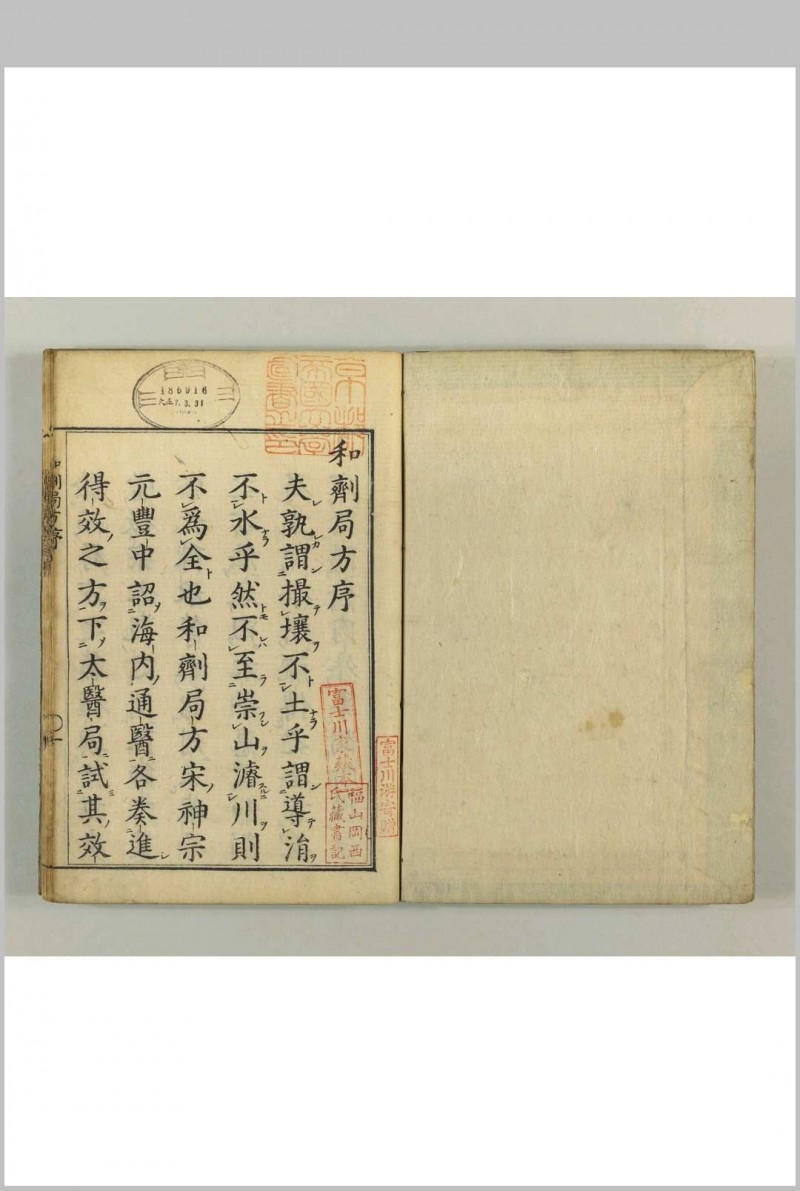 和劑局方序
夫孰謂撮壤不土乎謂導涓
不水乎然不至崇山濬川則
不爲全也和劑局方宋神宗
元豐中詔海内通醫各奏進
得效之方下太醫局試其效
和劑局方序
186916
大正7.3.31
富士川
福山岡西
氏藏書記